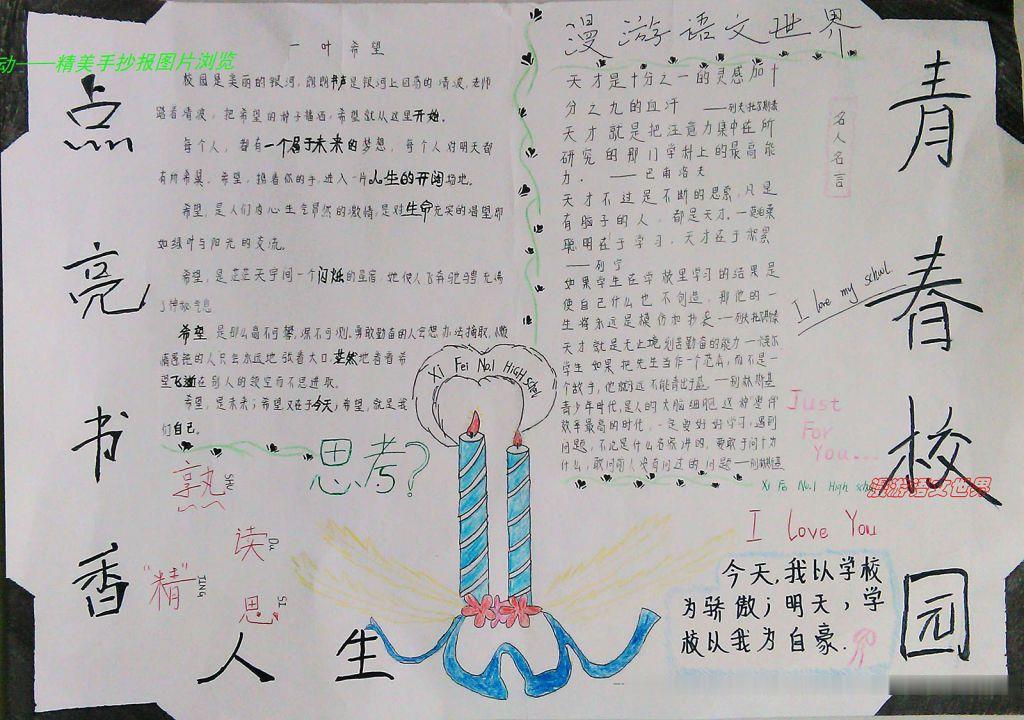 漫游语文世界
动——精美手抄报图片浏览
点亮书香
人生
青春校园
一叶希望
校园是美丽的银河,朗朗书声是银河上回荡的清波,老师
踏着清波,把希望的种子播洒,希望就从这里开始。
每个人,都有一个属于未来的梦想,每个人对明天都
有所希冀。希望,携着你的手,进入一片人生的开阔场地。
希望,是人们内心生气昂然的激情,是对生命充实的渴望即
如绿叶与阳光的交流。
希望,是茫茫天宇间一个闪烁的星宿,她使人飞奔驰骋充满
了神秘气息
希望 是那么高不可攀,深不可测,勇敢勤奋的人会想办法摘取,懒
惰愚钝的人只会永远地张着大口,茫然地看着希
望飞逝在别人的领空而不思进取。
希望,是未来;希望又在于今天;希望,就是我
们自己。
思考?
熟 Shu
读 Du
“精” JING
思 SI
Xi Fei No.1 High School
名人名言
天才是十分之一的灵感加十
分之九的血汗 ——列夫·托尔斯泰
天才就是把注意力集中在所
研究的那门学科上的最高能
力. ——巴甫洛夫
天才不过是不断的思索,凡是
有脑子的人,都是天才.—莫泊桑
聪明在于学习,天才在于积累
——列宁
如果学生在学校里学习的结果是
使自己什么也不创造,那他的一
生将永远是模仿和抄袭——列夫·托尔斯泰
天才就是无止境刻苦勤奋的能力
学生如果把先生当作一个范本,而不是一
个敌手,他就永远不能青出于蓝.——别林斯基
青少年时代,是人的大脑细胞
效率最高的时代,一定要好好学习,遇到
问题,不论是什么名家讲的,要敢于问十为
什么,敢问前人没有问过的问题—别林斯基
I love my school.
Just
For
You...
Xi Fe No.1 High school
漫游语文世界
I Love You
今天,我以学校
为骄傲;明天,学
校以我为自豪.